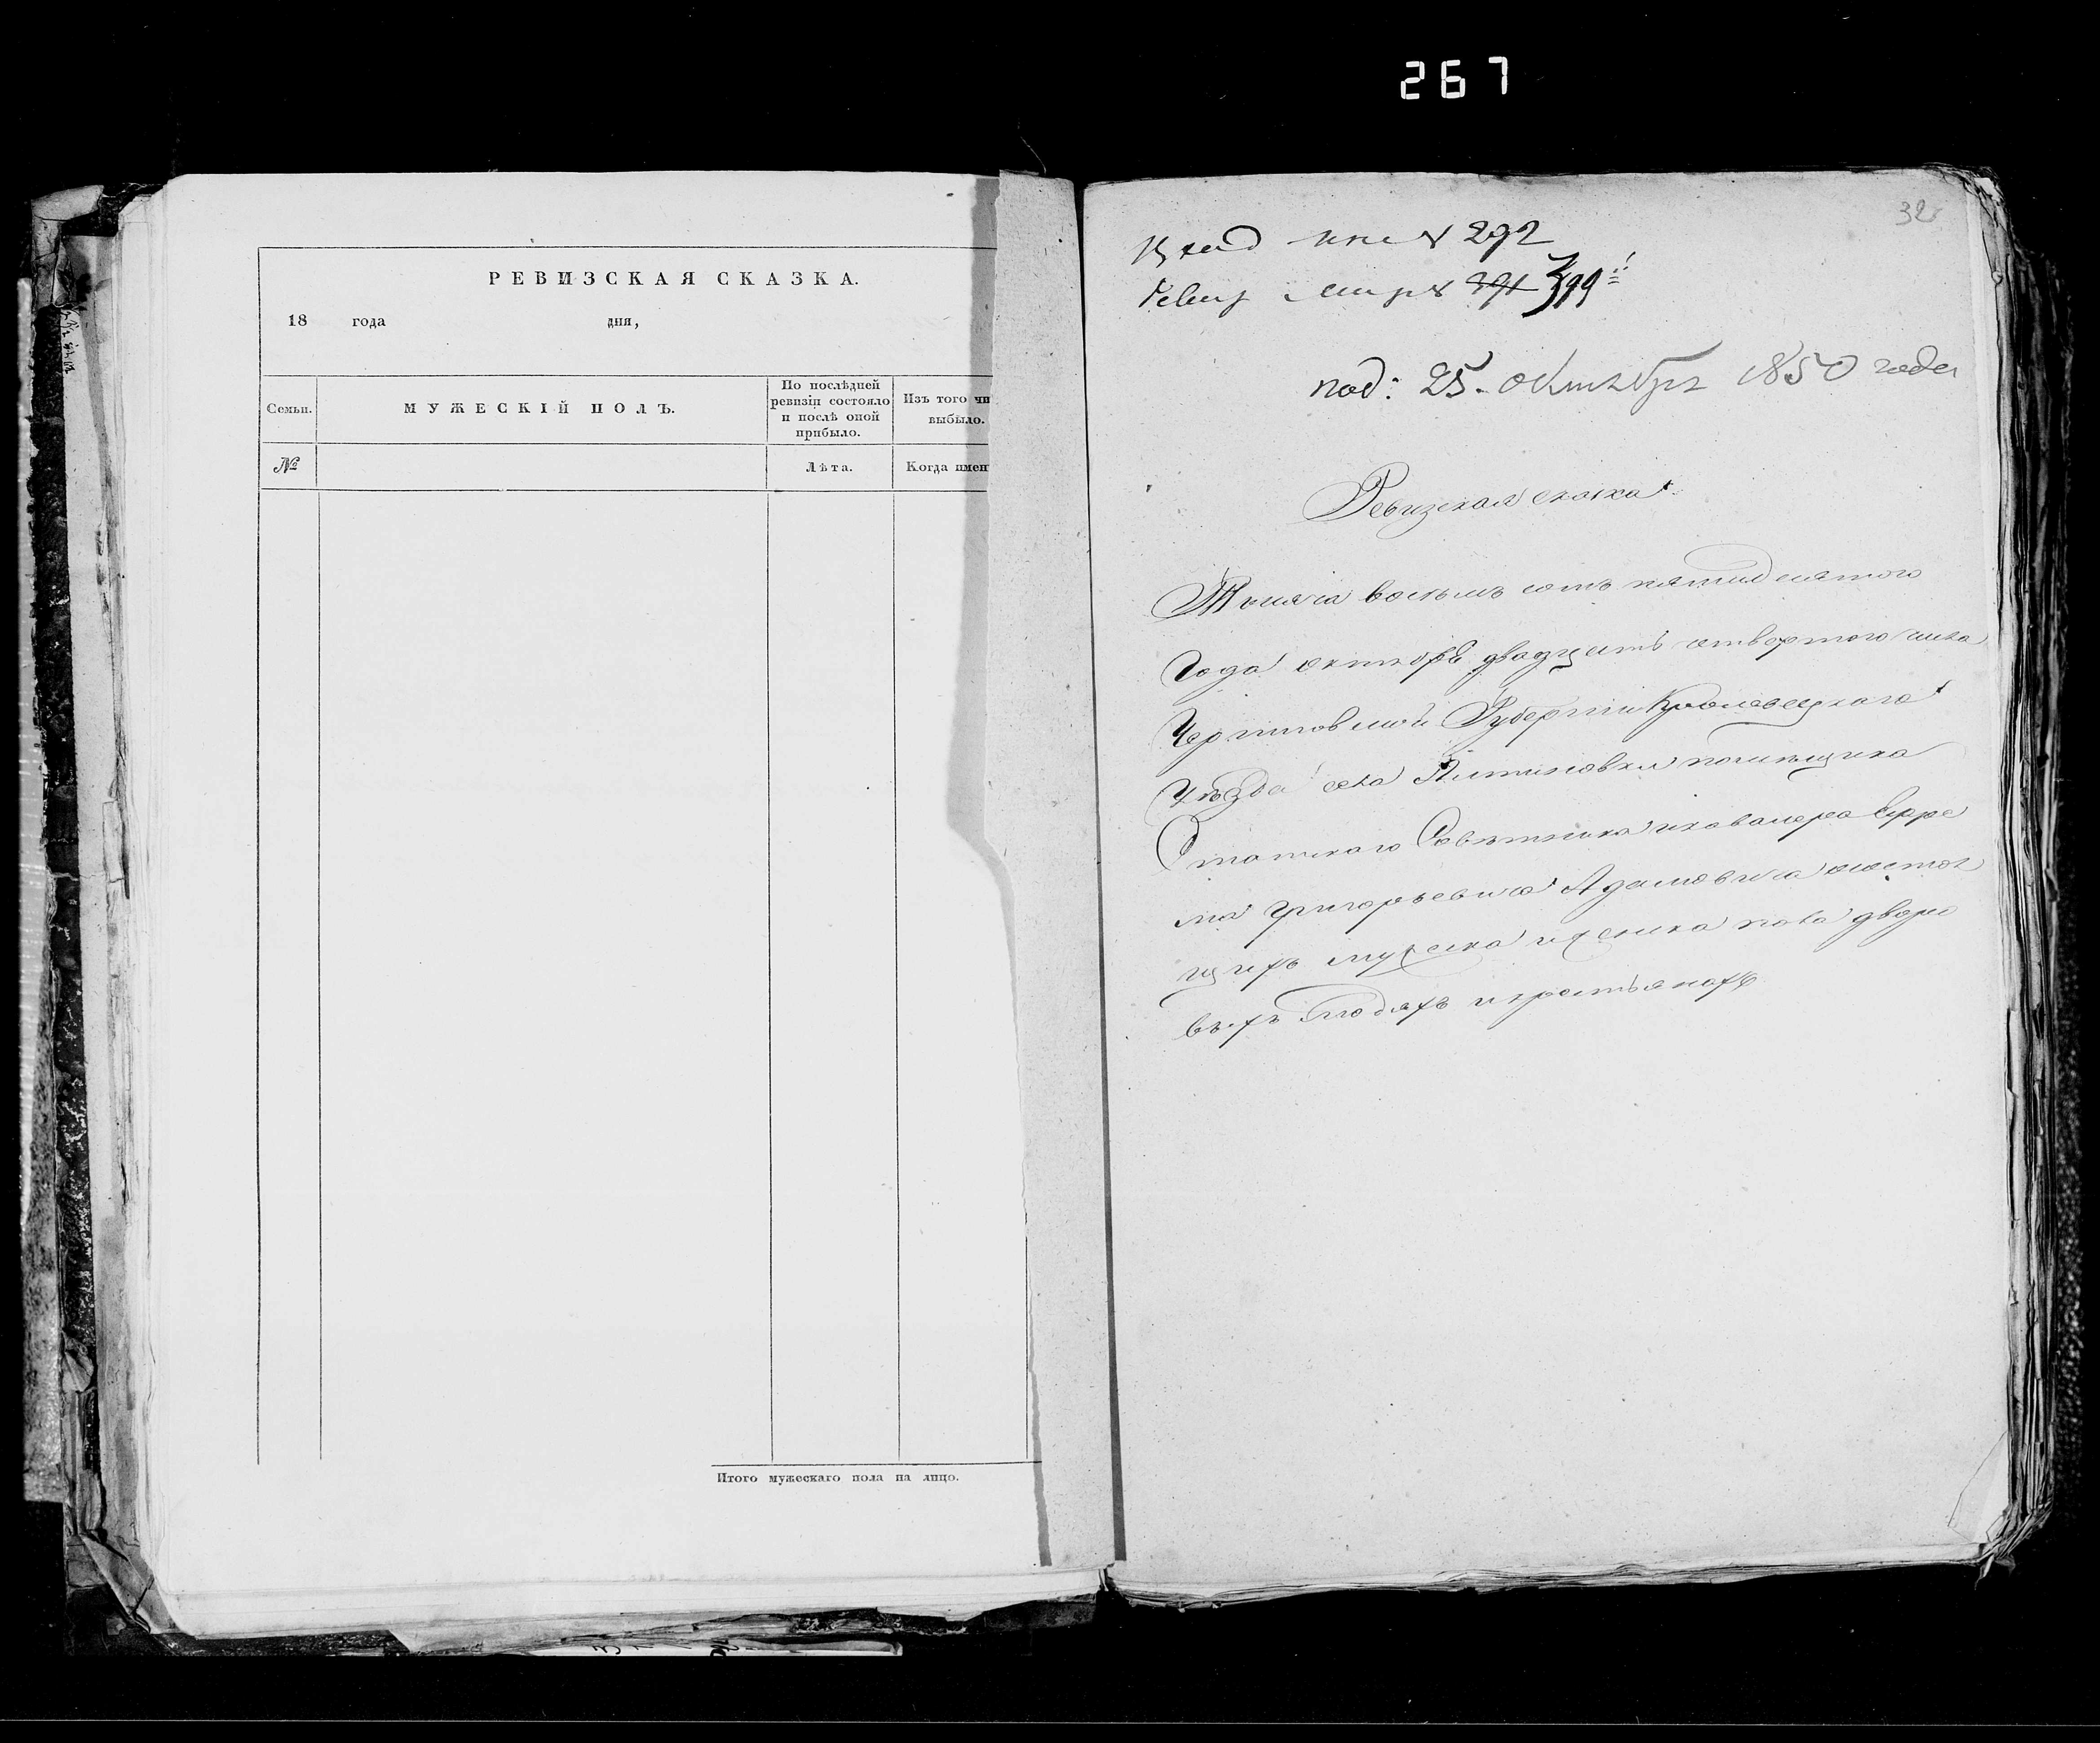 267
РЕВИЗСКАЯ СКАЗКА.
18 года дня,
Семьи.
МУЖЕСКІЙ ПОЛЪ.
По послѣдней
ревизіи состояло
и послѣ оной
прибыло.
Изъ того чи
выбыло.
№
Лѣта.
Когда имен
Итого мужескаго пола на лицо.
32
№ 292
Ревиз № 391 399
под: 25. октября 1850 года
Ревизская сказка
Тысяча восемь сотъ пятидесятого
Года октября двадцать четвертого числа
Черниговской Губерніи Кролевецкаго
Уѣзда села помѣщика
Статскаго Совѣтника и кавалера Ефре
ма Григорьевича Адамовича состоя
щихъ мужеска и женска пола дворо
выхъ людяхъ и крестьянахъ